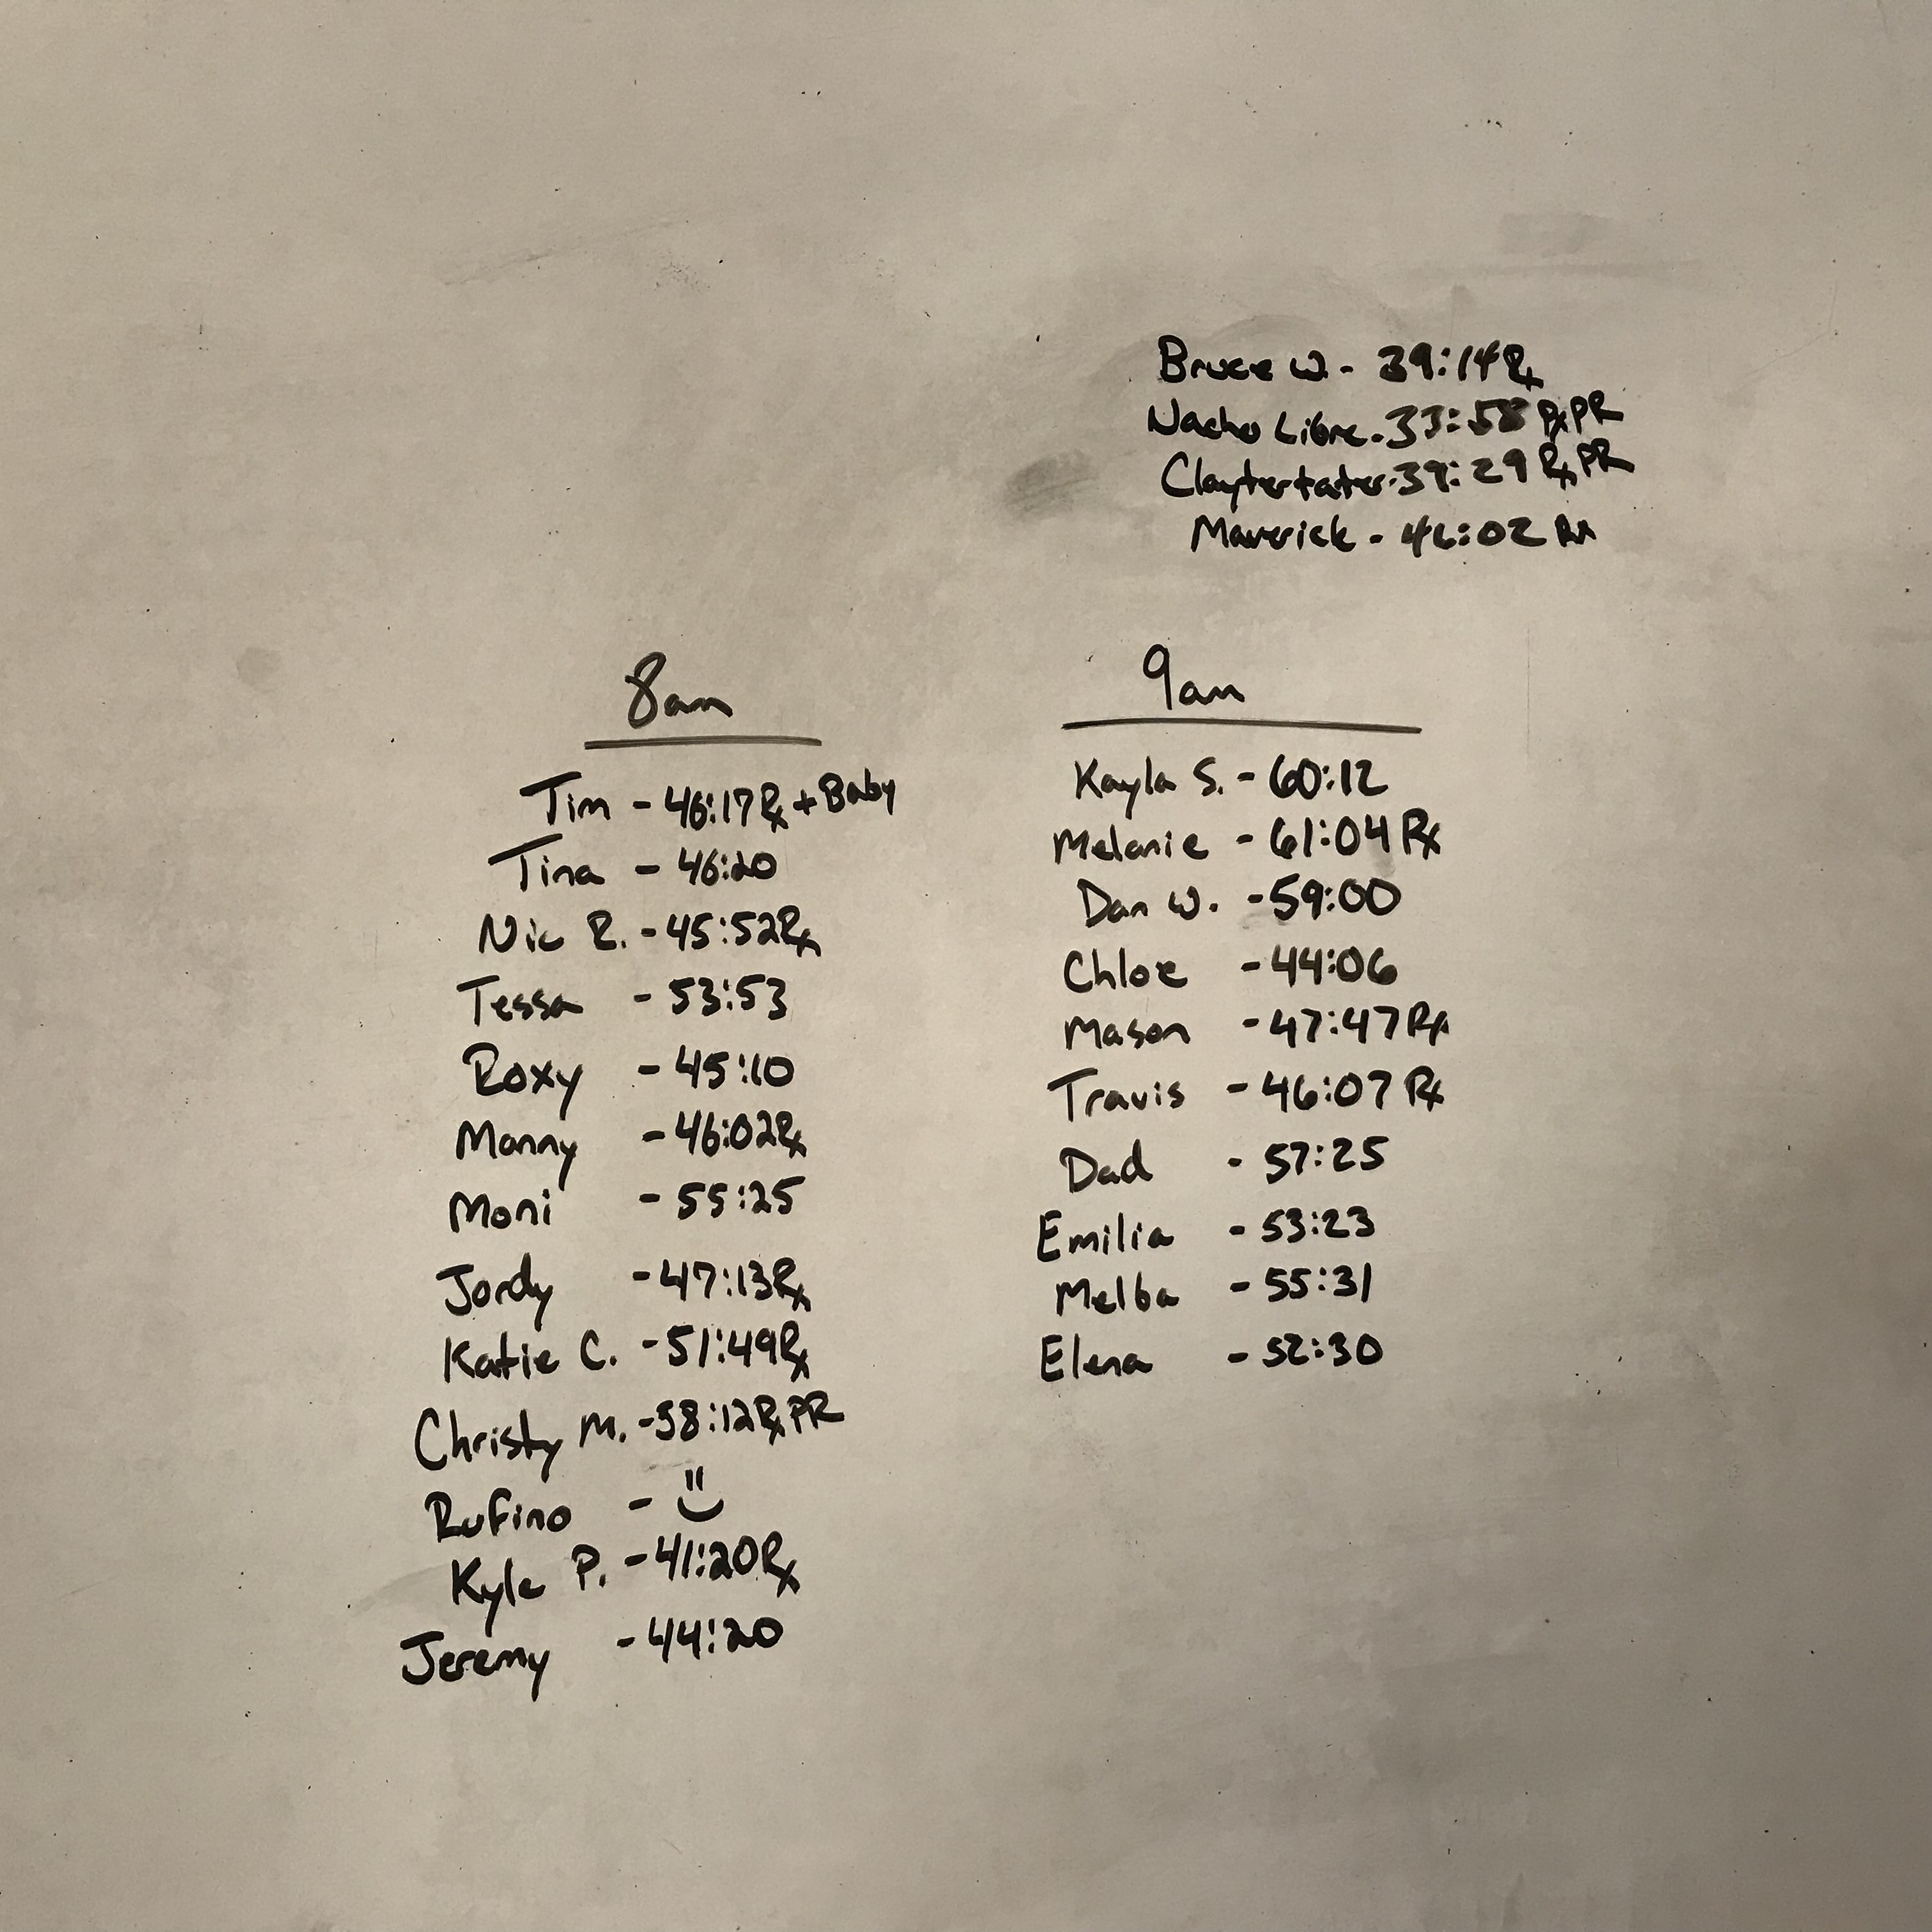 Bruce W. - 39:14 Rx
Nacho Libre - 33:58 Rx PR
Claytertater - 39:29 Rx PR
Maverick - 46:02 Rx
8am
Tim - 46:17 Rx + Baby
Tina - 46:20
Nic R. - 45:52 Rx
Tessa - 53:53
Roxy - 45:10
Manny - 46:02 Rx
Moni - 55:25
Jordy - 47:13 Rx
Katie C. - 51:49 Rx
Christy M. - 38:12 Rx PR
Rufino -
Kyle P. - 41:20 Rx
Jeremy - 44:20
9am
Kayla S. - 60:12
Melanie - 61:04 Rx
Dan W. - 59:00
Chloe - 44:06
Mason - 47:47 Rx
Travis - 46:07 Rx
Dad - 57:25
Emilia - 53:23
Melba - 55:31
Elena - 52:30